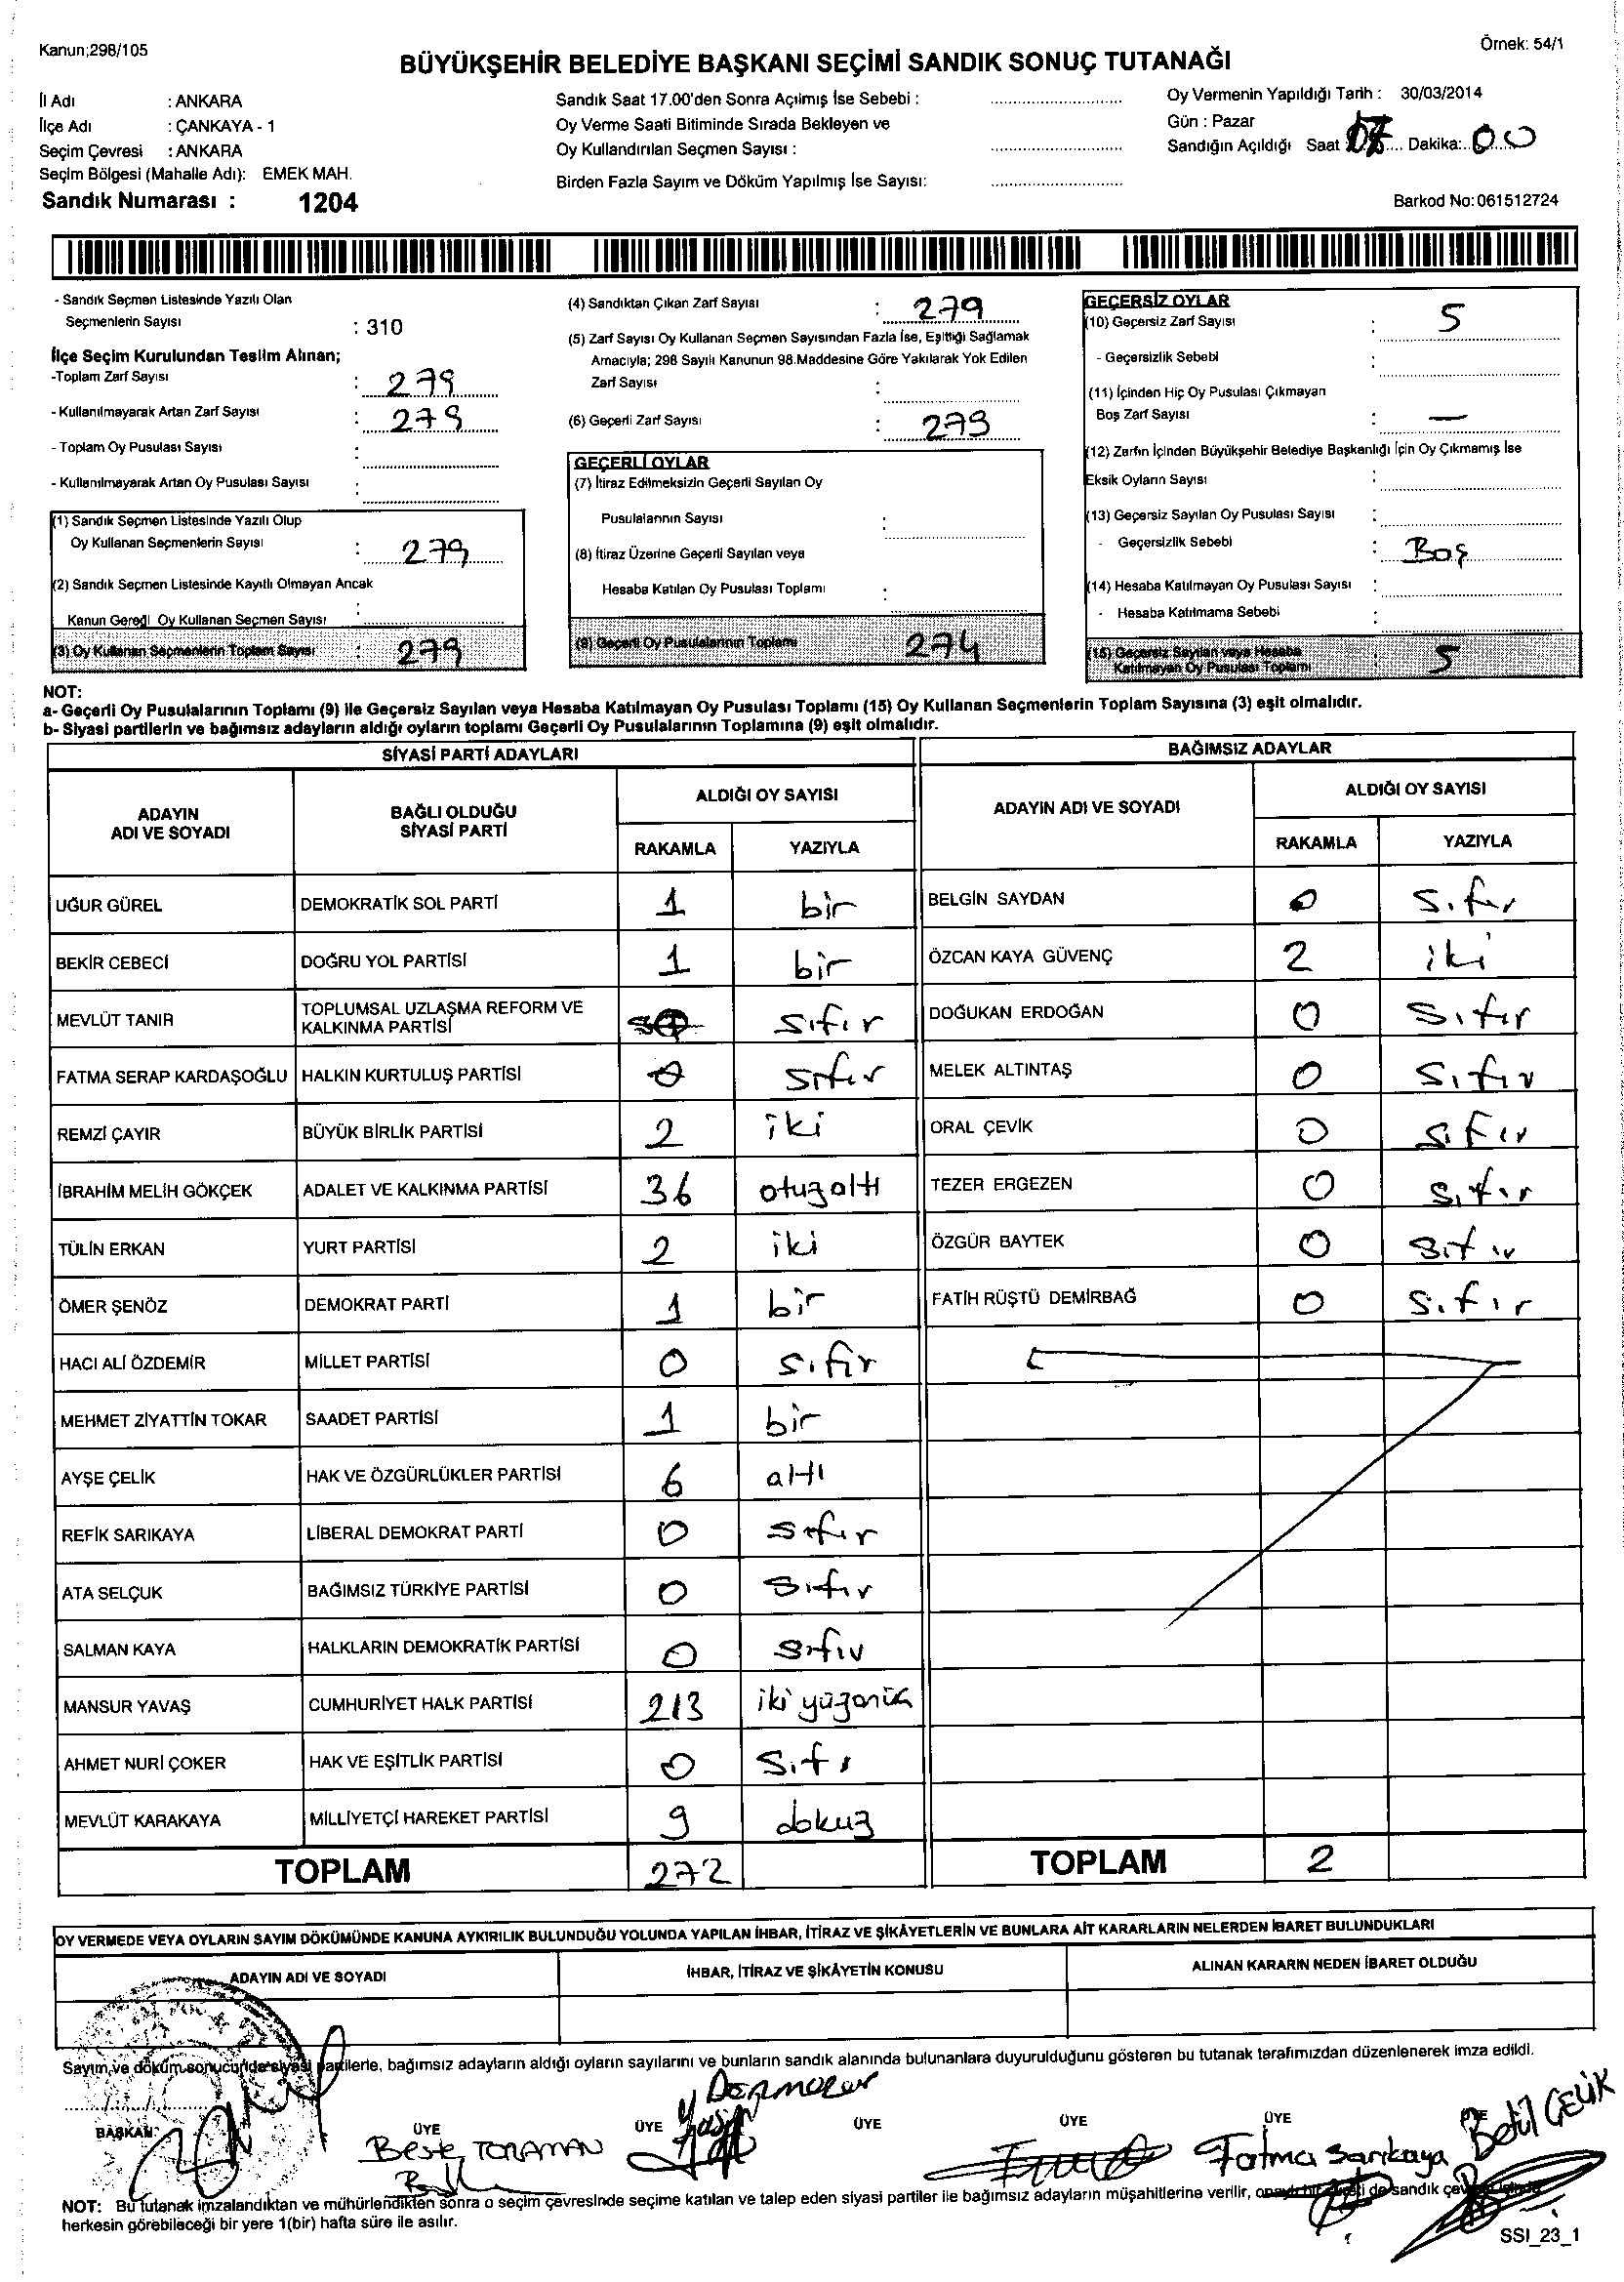 Kanun;298/105
Örnek: 54/1
BÜYÜKŞEHİR BELEDİYE BAŞKANI SEÇİMİ SANDIK SONUÇ TUTANAĞI
İl Adı : ANKARA
İlçe Adı : ÇANKAYA - 1
Seçim Çevresi : ANKARA
Seçim Bölgesi (Mahalle Adı): EMEK MAH.
Sandık Numarası : 1204
Sandık Saat 17.00'den Sonra Açılmış İse Sebebi :
Oy Verme Saati Bitiminde Sırada Bekleyen ve
Oy Kullandırılan Seçmen Sayısı :
Birden Fazla Sayım ve Döküm Yapılmış İse Sayısı:
Oy Vermenin Yapıldığı Tarih : 30/03/2014
Gün : Pazar
Sandığın Açıldığı Saat Dakika: 00
Barkod No:061512724
- Sandık Seçmen Listesinde Yazılı Olan
Seçmenlerin Sayısı : 310
İlçe Seçim Kurulundan Teslim Alınan;
-Toplam Zarf Sayısı : 279
- Kullanılmayarak Artan Zarf Sayısı : 279
- Toplam Oy Pusulası Sayısı :
- Kullanılmayarak Artan Oy Pusulası Sayısı :
(1) Sandık Seçmen Listesinde Yazılı Olup
Oy Kullanan Seçmenlerin Sayısı : 279
(2) Sandık Seçmen Listesinde Kayıtlı Olmayan Ancak
Kanun Gereği Oy Kullanan Seçmen Sayısı :
(3) Oy Kullanan Seçmenlerin Toplam Sayısı : 279
(4) Sandıktan Çıkan Zarf Sayısı : 279
(5) Zarf Sayısı Oy Kullanan Seçmen Sayısından Fazla İse, Eşitliği Sağlamak
Amacıyla; 298 Sayılı Kanunun 98.Maddesine Göre Yakılarak Yok Edilen
Zarf Sayısı :
(6) Geçerli Zarf Sayısı : 279
GEÇERLİ OYLAR
(7) İtiraz Edilmeksizin Geçerli Sayılan Oy
Pusulalarının Sayısı :
(8) İtiraz Üzerine Geçerli Sayılan veya
Hesaba Katılan Oy Pusulası Toplamı :
(9) Geçerli Oy Pusulalarının Toplamı 274
GEÇERSİZ OYLAR
(10) Geçersiz Zarf Sayısı : 5
- Geçersizlik Sebebi :
(11) İçinden Hiç Oy Pusulası Çıkmayan
Boş Zarf Sayısı : —
(12) Zarfın İçinden Büyükşehir Belediye Başkanlığı İçin Oy Çıkmamış İse
Eksik Oyların Sayısı :
(13) Geçersiz Sayılan Oy Pusulası Sayısı :
- Geçersizlik Sebebi : Boş
(14) Hesaba Katılmayan Oy Pusulası Sayısı :
- Hesaba Katılmama Sebebi :
(15) Geçersiz Sayılan veya Hesaba
Katılmayan Oy Pusulası Toplamı : 5
NOT:
a- Geçerli Oy Pusulalarının Toplamı (9) ile Geçersiz Sayılan veya Hesaba Katılmayan Oy Pusulası Toplamı (15) Oy Kullanan Seçmenlerin Toplam Sayısına (3) eşit olmalıdır.
b- Siyasi partilerin ve bağımsız adayların aldığı oyların toplamı Geçerli Oy Pusulalarının Toplamına (9) eşit olmalıdır.
SİYASİ PARTİ ADAYLARI
ADAYIN ADI VE SOYADI
BAĞLI OLDUĞU SİYASİ PARTİ
ALDIĞI OY SAYISI
RAKAMLA YAZIYLA
UĞUR GÜREL DEMOKRATİK SOL PARTİ 1 bir
BEKİR CEBECİ DOĞRU YOL PARTİSİ 1 bir
MEVLÜT TANIR TOPLUMSAL UZLAŞMA REFORM VE KALKINMA PARTİSİ sıfır
FATMA SERAP KARDAŞOĞLU HALKIN KURTULUŞ PARTİSİ 0 sıfır
REMZİ ÇAYIR BÜYÜK BİRLİK PARTİSİ 2 iki
İBRAHİM MELİH GÖKÇEK ADALET VE KALKINMA PARTİSİ 36 otuzaltı
TÜLİN ERKAN YURT PARTİSİ 2 iki
ÖMER ŞENÖZ DEMOKRAT PARTİ 1 bir
HACI ALİ ÖZDEMİR MİLLET PARTİSİ 0 sıfır
MEHMET ZİYATTİN TOKAR SAADET PARTİSİ 1 bir
AYŞE ÇELİK HAK VE ÖZGÜRLÜKLER PARTİSİ 6 altı
REFİK SARIKAYA LİBERAL DEMOKRAT PARTİ 0 sıfır
ATA SELÇUK BAĞIMSIZ TÜRKİYE PARTİSİ 0 sıfır
SALMAN KAYA HALKLARIN DEMOKRATİK PARTİSİ 0 sıfır
MANSUR YAVAŞ CUMHURİYET HALK PARTİSİ 213 iki yüzonüç
AHMET NURİ ÇOKER HAK VE EŞİTLİK PARTİSİ 0 sıfı
MEVLÜT KARAKAYA MİLLİYETÇİ HAREKET PARTİSİ 9 dokuz
TOPLAM 272
BAĞIMSIZ ADAYLAR
ADAYIN ADI VE SOYADI
ALDIĞI OY SAYISI
RAKAMLA YAZIYLA
BELGİN SAYDAN 0 sıfır
ÖZCAN KAYA GÜVENÇ 2 iki
DOĞUKAN ERDOĞAN 0 sıfır
MELEK ALTINTAŞ 0 sıfır
ORAL ÇEVİK 0 sıfır
TEZER ERGEZEN 0 sıfır
ÖZGÜR BAYTEK 0 sıfır
FATİH RÜŞTÜ DEMİRBAĞ 0 sıfır
TOPLAM 2
OY VERMEDE VEYA OYLARIN SAYIM DÖKÜMÜNDE KANUNA AYKIRILIK BULUNDUĞU YOLUNDA YAPILAN İHBAR, İTİRAZ VE ŞİKÂYETLERİN VE BUNLARA AİT KARARLARIN NELERDEN İBARET BULUNDUKLARI
ADAYIN ADI VE SOYADI İHBAR, İTİRAZ VE ŞİKÂYETİN KONUSU ALINAN KARARIN NEDEN İBARET OLDUĞU
Sayım ve döküm sonucunda siyasi partilerle, bağımsız adayların aldığı oyların sayılarını ve bunların sandık alanında bulunanlara duyurulduğunu gösteren bu tutanak tarafımızdan düzenlenerek imza edildi.
BAŞKAN ÜYE ÜYE ÜYE ÜYE ÜYE
Beste TORAMAN
Fatma Sarıkaya
Betül ÇELİK
NOT: Bu tutanak imzalandıktan ve mühürlendikten sonra o seçim çevresinde seçime katılan ve talep eden siyasi partiler ile bağımsız adayların müşahitlerine verilir, de sandık
herkesin görebileceği bir yere 1(bir) hafta süre ile asılır.
SSI_23_1